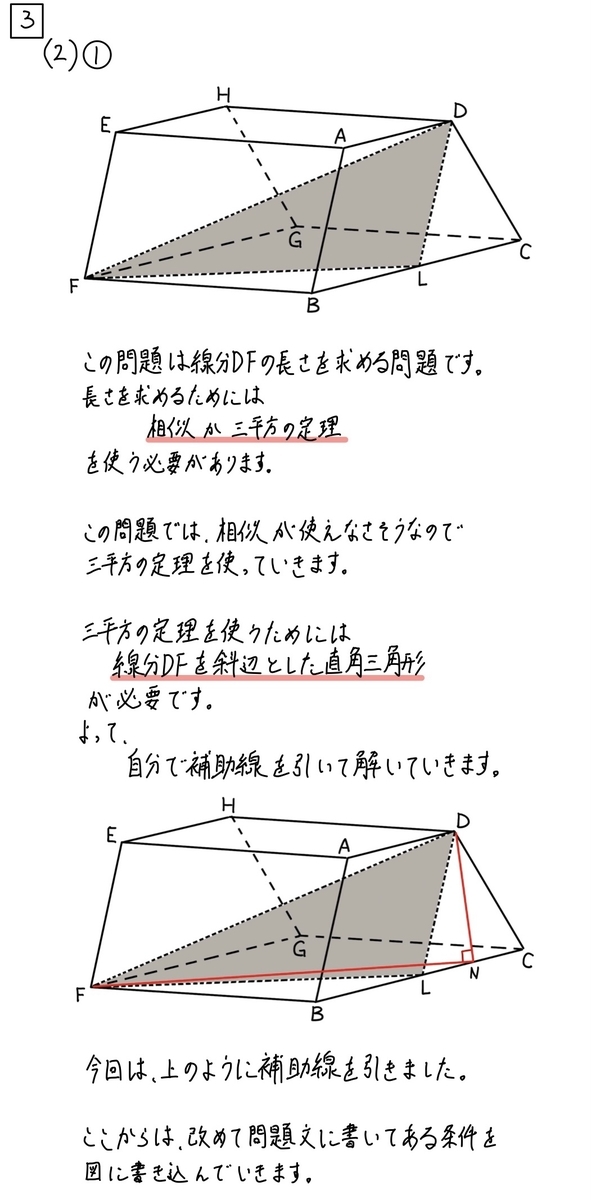 3
(2)①
H
E
A
D
G
C
F
L
B
この問題は線分DFの長さを求める問題です。
長さを求めるためには
相似か三平方の定理
を使う必要があります。
この問題では、相似が使えなさそうなので
三平方の定理を使っていきます。
三平方の定理を使うためには
線分DFを斜辺とした直角三角形
が必要です。
よって、
自分で補助線を引いて解いていきます。
H
D
E
A
G
C
N
F
L
B
今回は、上のように補助線を引きました。
ここからは、改めて問題文に書いてある条件を
図に書き込んでいきます。